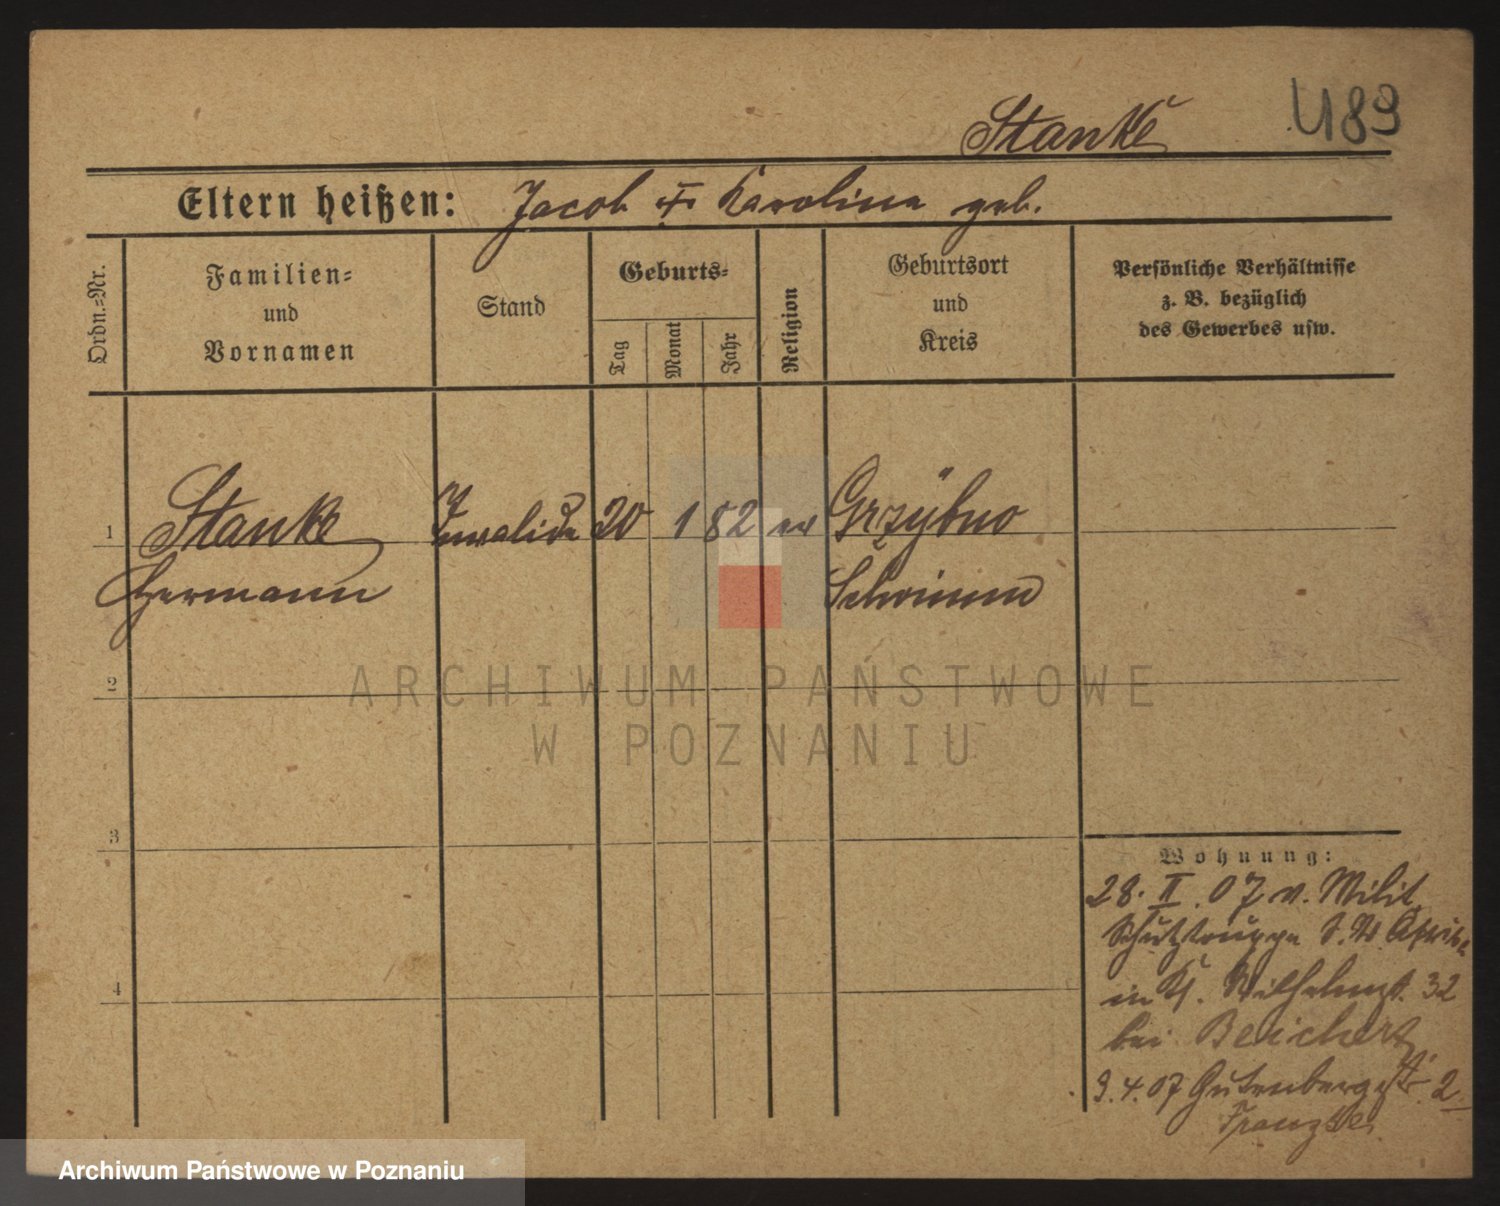 Stanke
489
Eltern heißen: Jacob u Karolina geb.
Ordn.=Nr.
Familien=
und
Vornamen
Stand
Geburts=
Tag
Monat
Jahr
Religion
Geburtsort
und
Kreis
Persönliche Verhältnisse
z. B. bezüglich
des Gewerbes usw.
1 Stanke Invalide 20 1 82 ev Grzybno
Hermann Schrimm
2
3
4
Wohnung:
28. II. 07 v. Milit.
Schutztruppe S. W. Afrika
in Kl. Wilhelmst. 32
bei Beichert
9.4.07 Gutenbergstr. 2
Franzke
ARCHIWUM PAŃSTWOWE
W POZNANIU
Archiwum Państwowe w Poznaniu